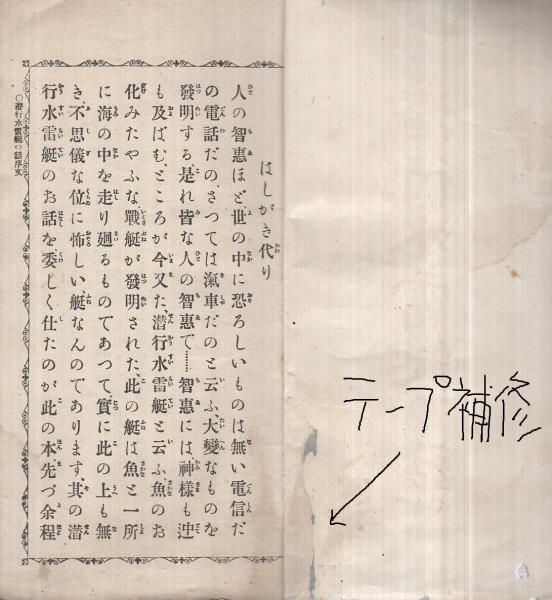 テープ補修
はしがき代り
人の智惠ほど、世の中に恐ろしいものは無い電信だ
の電話だの、さつては滊車だのと云ふ、大變なものを
發明する是れ皆な人の智惠で……智惠には、神様も迚
も及ばむ、ところが今又た、潜行水雷艇と云ふ魚のお
化みたやふな戰艇が發明された、此の艇は魚と一所
に海の中を走り廻るものであつて、實に此の上も無
き不思儀な位に怖しい、艇なんのであります、其の潜
行水雷艇のお話を、委しく仕たのが此の本先づ余程
〇潜行水雷艇の話序文